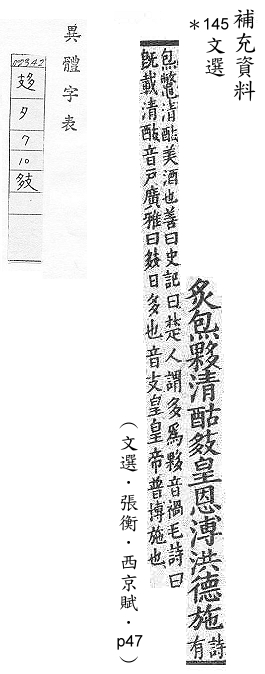 補充資料
＊145
文選
炙炰夥清酤㩼皇恩溥洪德施
詩
有
炰鼈清酤美酒也善曰史記曰楚人謂多爲夥音禍毛詩曰
旣載清酤音戶廣雅曰㩼日多也音支皇皇帝普博施也
（文選．張衡．西京賦．p47）
異體字表
02342
夕
7
10
㩼